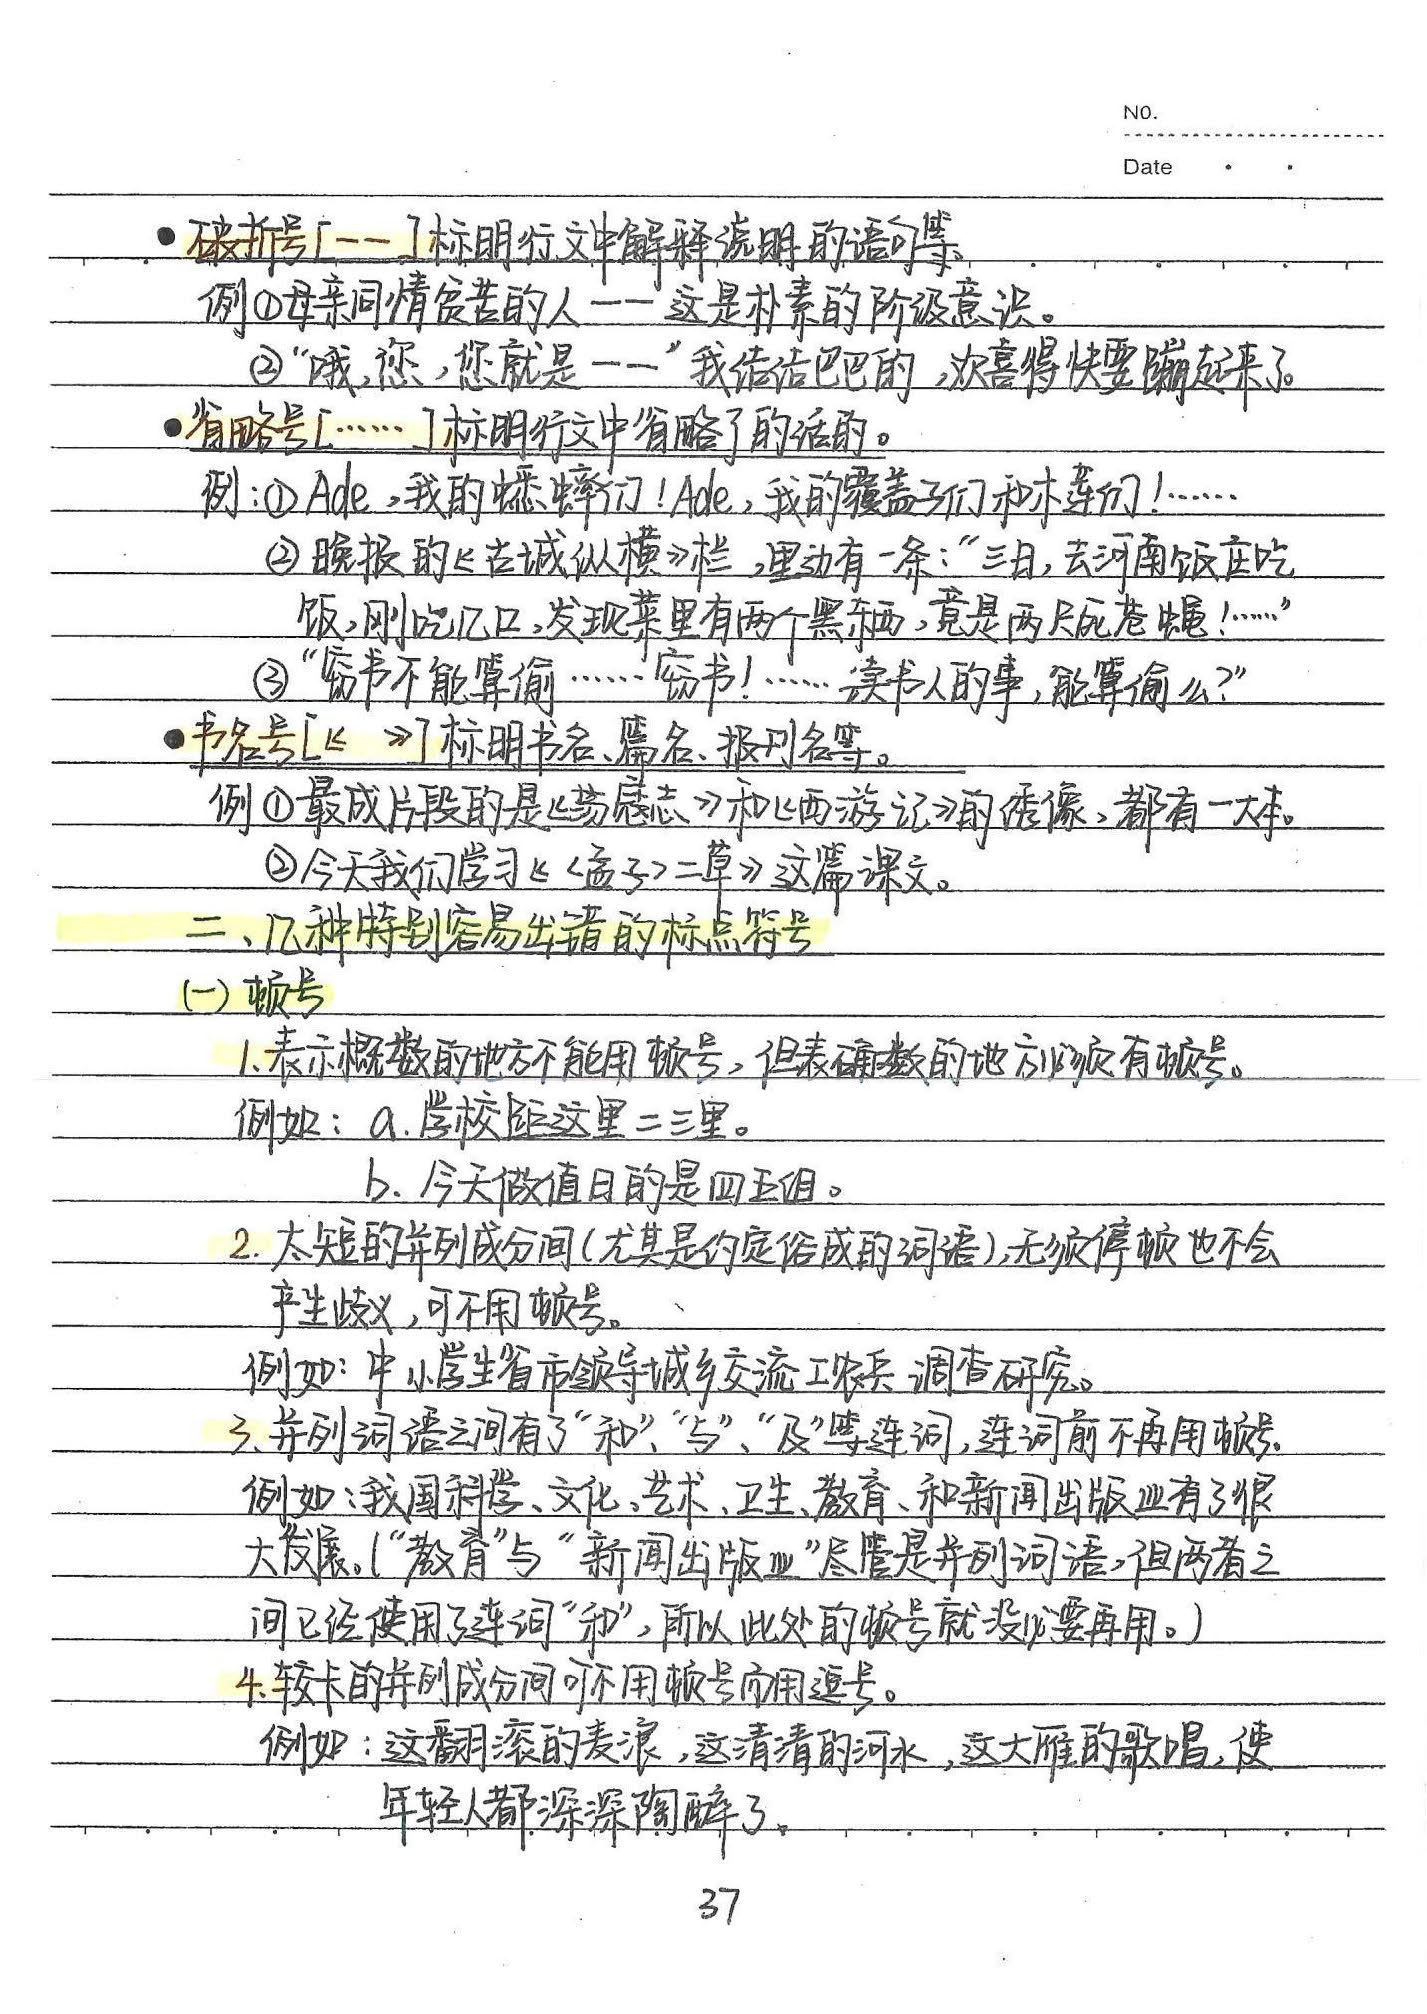 NO.
Date
●破折号[——]标明行文中解释说明的语句等。
例①母亲同情贫苦的人——这是朴素的阶级意识。
②“哦,您,您就是——”我结结巴巴的,欢喜得快要蹦起来了。
●省略号[……]标明行文中省略了的话的。
例:①Ade,我的蟋蟀们!Ade,我的覆盖子们和木莲们!……
②晚报的《古城纵横》栏,里边有一条:“三日,去河南饭庄吃
饭,刚吃几口,发现菜里有两个黑东西,竟是两只死苍蝇!……”
③“窃书不能算偷……窃书!……读书人的事,能算偷么?”
●书名号[《 》]标明书名、篇名、报刊名等。
例①最成片段的是《荡寇志》和《西游记》的绣像、都有一大本。
②今天我们学习《〈孟子〉二章》这篇课文。
二、几种特别容易出错的标点符号
(一)顿号
1.表示概数的地方不能用顿号,但表确数的地方必须有顿号。
例如:a.学校距这里二三里。
b.今天做值日的是四五组。
2.太短的并列成分间(尤其是约定俗成的词语),无须停顿也不会
产生歧义,可不用顿号。
例如:中小学生省市领导城乡交流工农兵调查研究。
3.并列词语之间有了“和”、“与”、“及”等连词,连词前不再用顿号。
例如:我国科学、文化、艺术、卫生、教育、和新闻出版业有了很
大发展。(“教育”与“新闻出版业”尽管是并列词语,但两者之
间已经使用了连词“和”,所以此处的顿号就没必要再用。)
4.较长的并列成分间可不用顿号而用逗号。
例如:这翻滚的麦浪,这清清的河水,这大雁的歌唱,使
年轻人都深深陶醉了。
37